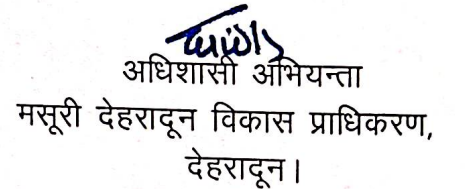 अधिशासी अभियन्ता
मसूरी देहरादून विकास प्राधिकरण,
देहरादून।